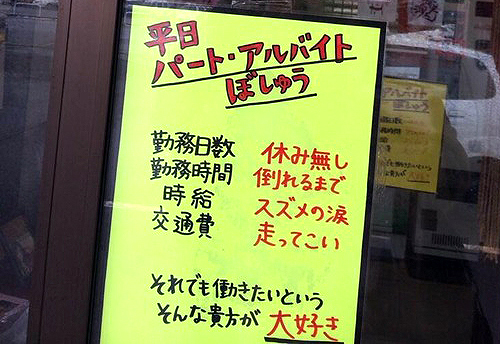 平日
パート・アルバイト
ぼしゅう
勤務日数 休み無し
勤務時間 倒れるまで
時給 スズメの涙
交通費 走ってこい
それでも働きたいという
そんな貴方が 大好き
アルバイト
ぼしゅう